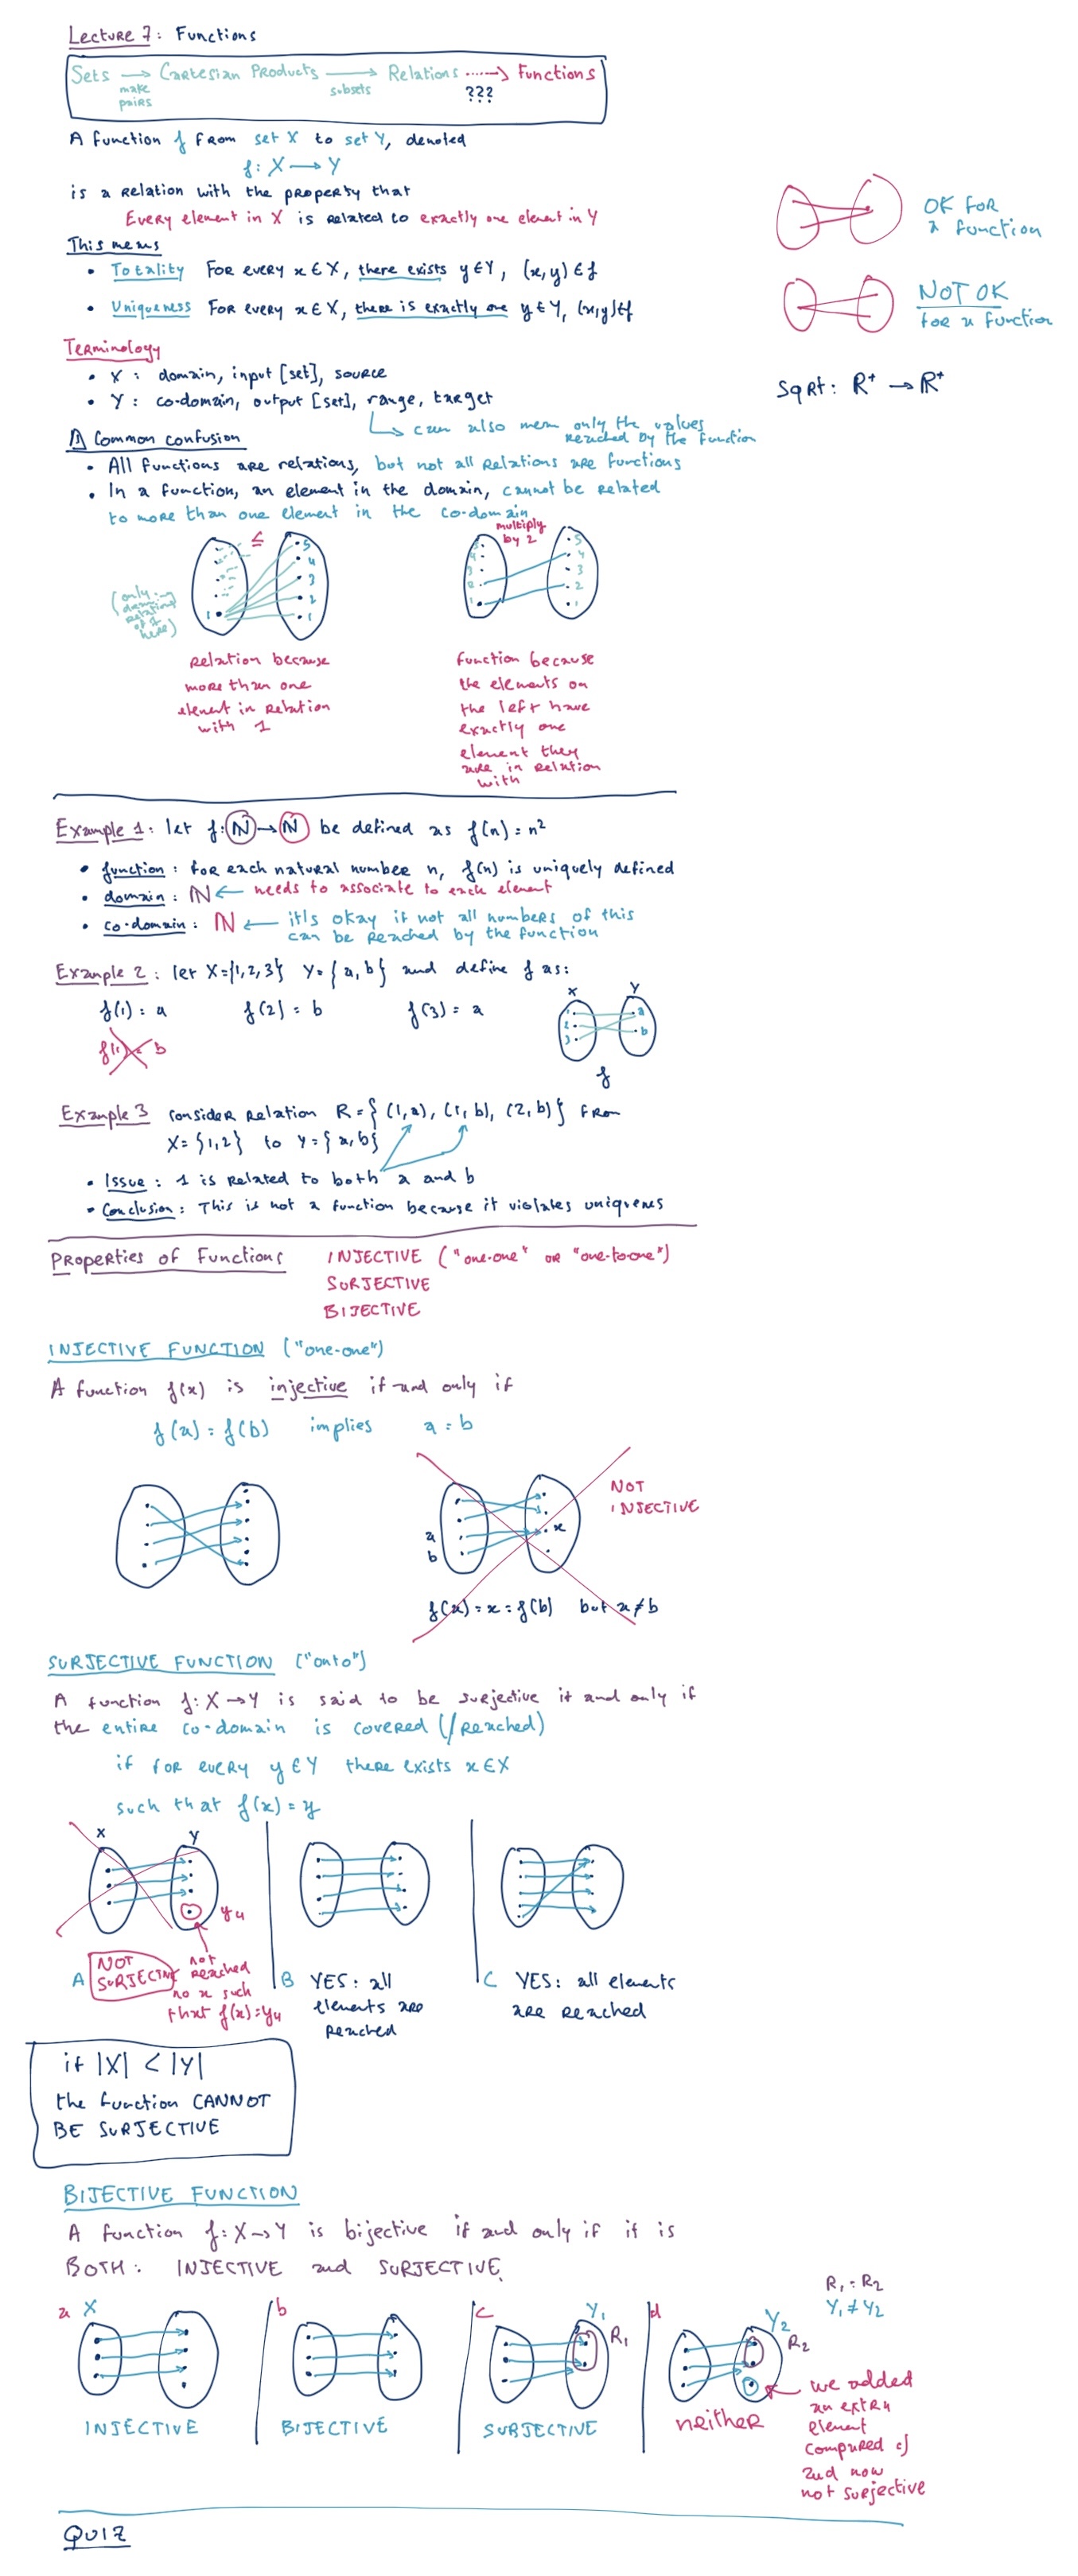 Lecture 7: Functions
Sets → Cartesian Products → Relations ⇢ Functions
make pairs
subsets
???
A function f from set X to set Y, denoted
f: X → Y
is a relation with the property that
Every element in X is related to exactly one element in Y
OK for
a function
NOT OK
for a function
Sqrt: R⁺ → R⁺
This means
• Totality For every x ∈ X, there exists y ∈ Y, (x,y) ∈ f
• Uniqueness For every x ∈ X, there is exactly one y ∈ Y, (x,y) ∈ f
Terminology
• X: domain, input [set], source
• Y: co-domain, output [set], range, target
↳ can also mean only the values
reached by the function
⚠ Common confusion
• All functions are relations, but not all relations are functions
• In a function, an element in the domain, cannot be related
to more than one element in the co-domain
≤
5
4
3
2
1
1
(only
drawing
relations
of 1
here)
multiply
by 2
5
4
3
2
1
3
2
1
Relation because
more than one
element in relation
with 1
function because
the elements on
the left have
exactly one
element they
are in relation
with
Example 1: let f: ℕ → ℕ be defined as f(n) = n²
• function: for each natural number n, f(n) is uniquely defined
• domain: ℕ ← needs to associate to each element
• co-domain: ℕ ← it's okay if not all numbers of this
can be reached by the function
Example 2: let X={1,2,3} Y={a,b} and define f as:
f(1) = a f(2) = b f(3) = a
f(1) = b
X Y
1
2
3
a
b
f
Example 3 consider relation R = {(1,a), (1,b), (2,b)} from
X={1,2} to Y={a,b}
• Issue: 1 is related to both a and b
• Conclusion: This is not a function because it violates uniqueness
Properties of Functions
INJECTIVE ("one-one" or "one-to-one")
SURJECTIVE
BIJECTIVE
INJECTIVE FUNCTION ("one-one")
A function f(x) is injective if and only if
f(a) = f(b) implies a = b
NOT
INJECTIVE
a
b
x
f(a) = x = f(b) but a ≠ b
SURJECTIVE FUNCTION ("onto")
A function f: X → Y is said to be surjective if and only if
the entire co-domain is covered (/reached)
if for every y ∈ Y there exists x ∈ X
such that f(x) = y
X Y
y4
A NOT
SURJECTIVE
not
reached
no x such
that f(x) = y4
B YES: all
elements are
reached
C YES: all elements
are reached
if |X| < |Y|
the function CANNOT
BE SURJECTIVE
BIJECTIVE FUNCTION
A function f: X → Y is bijective if and only if it is
BOTH: INJECTIVE and SURJECTIVE.
R₁ = R₂
Y₁ ≠ Y₂
a X
b
c Y₁ R₁
d Y₂ R₂
INJECTIVE
BIJECTIVE
SURJECTIVE
neither
we added
an extra
element
compared c)
and now
not surjective
QUIZ